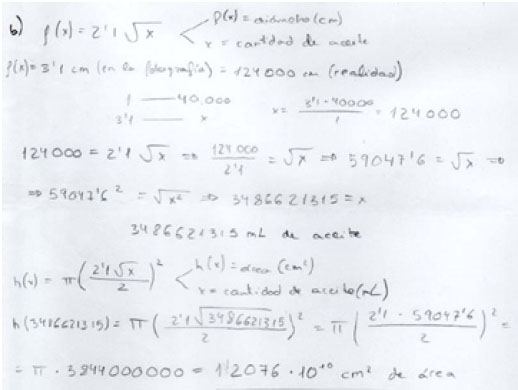 b) f(x) = 2'1 √x f(x) = diámetro (cm)
x = cantidad de aceite
f(x) = 3'1 cm (en la fotografía) = 124000 cm (realidad)
1 —— 40.000 x = 3'1 · 40000 / 1 = 124000
3'1 —— x
124000 = 2'1 √x ⇒ 124000 / 2'1 = √x ⇒ 59047'6 = √x ⇒
⇒ 59047'6² = √x² ⇒ 3486621315 = x
3486621315 mL de aceite
h(x) = π (2'1 √x / 2)² h(x) = área (cm²)
x = cantidad de aceite (mL)
h(3486621315) = π (2'1 √3486621315 / 2)² = π (2'1 · 59047'6 / 2)² =
= π · 3844000000 = 1'2076 · 10¹⁰ cm² de área